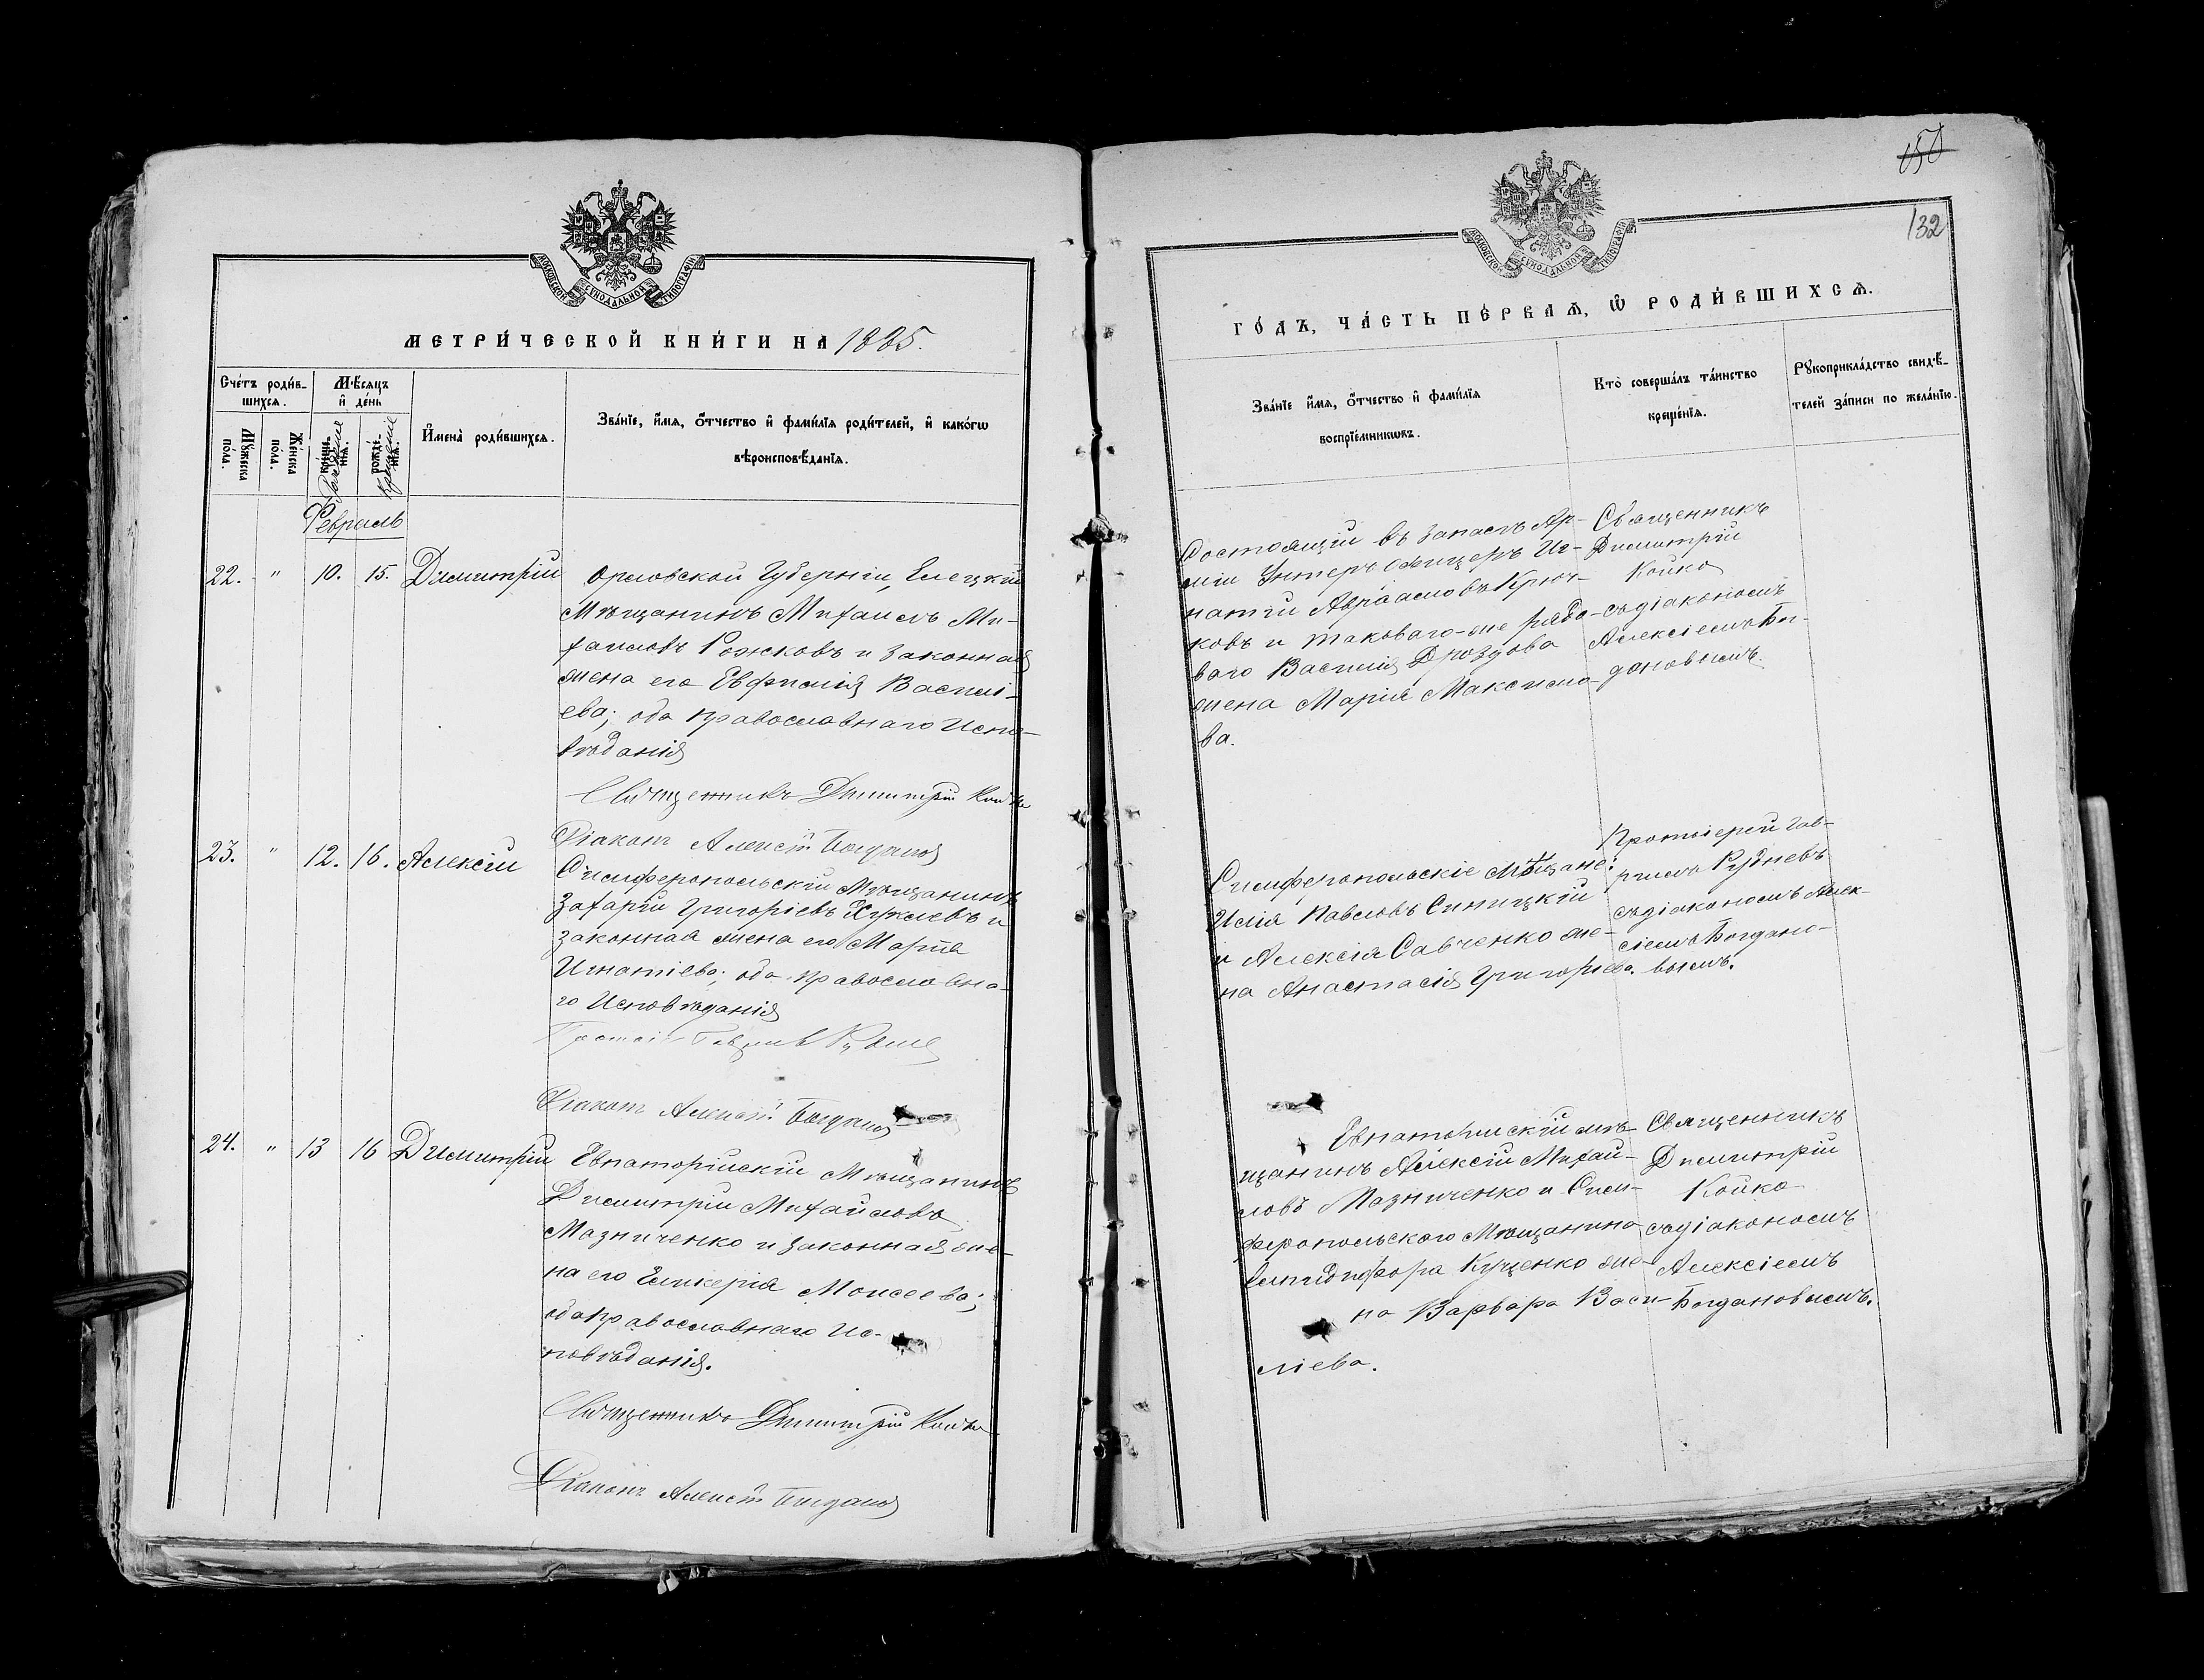 МОСКОВСКОЙ СѴНОДАЛЬНОЙ ТИПОГРАФІИ
МЕТРИ́ЧЕСКОЙ КНИ́ГИ НА 1885.
Сче́тъ роди́в-
шихсѧ.
Мѣ́сѧцъ
и҆ де́нь
Мꙋ́жеска
по́ла.
Же́нска
по́ла.
Рожденіе
Крещеніе
И҆мена̀ роди́вшихсѧ.
Зва́нїе, и҆́мѧ, ѻ҆́тчество и҆ фами́лїѧ роди́телей, и҆ како́гѡ
вѣроисповѣ́данїѧ.
Февраль
22. " 10. 15. Димитрій
Орловской Губерніи, Елецкій
Мѣщанинъ Михаилъ Ми-
хаиловъ Рожковъ и законная
жена его Евфимія Васили-
ева; оба православнаго Испо-
вѣданія
Священникъ Димитрій Койко
Діаконъ Алексѣй Богданов
23. " 12. 16. Алексій
Симферопольскій Мѣщанинъ
Захарій Григоріевъ и
законная жена его Марія
Игнатіева; оба православна-
го Исповѣданія
Діаконъ Алексѣй Богданов
24. " 13 16 Димитрій
Евпаторійскій Мѣщанинъ
Димитрій Михайловъ
Мазниченко и законная же-
на его Гликерія Моисеева;
оба православнаго Ис-
повѣданія.
Священникъ Димитрій Койко
Діаконъ Алексѣй Богданов
150
132
МОСКОВСКОЙ СѴНОДАЛЬНОЙ ТИПОГРАФІИ
ГО́ДЪ, ЧА́СТЬ ПЕ́РВАѦ, Ѡ҆ РОДИ́ВШИХСѦ.
Зва́нїе и҆́мѧ, ѻ҆́тчество и҆ фами́лїѧ
воспрїе́мникѡвъ.
Кто̀ соверша́лъ та́инство
креще́нїѧ.
Рꙋкоприкла́дство свидѣ́-
телей за́писи по жела́нїю.
Состоящій въ запасѣ Ар-
міи Унтеръ Офицеръ Иг-
натій Авраамовъ Крюч-
ковъ и таковаго-же рядо-
ваго Василія Дроздова
жена Марія Максимо-
ва.
Священникъ
Димитрій
Койко
съ діакономъ
Алексіемъ Бог-
дановымъ.
Симферопольскіе Мѣщане:
Илія Павловъ Синицкій
и Алексія Савченко же-
на Анастасія Григоріева.
Протоіерей Гав-
риилъ Рудневъ
съ діакономъ Алек-
сіемъ Богдано-
вымъ.
Евпаторійскій мѣ-
щанинъ Алексій Михай-
ловъ Мазниченко и Сим-
феропольскаго Мѣщанина
Кущенко же-
на Варвара Васи-
ліева.
Священникъ
Димитрій
Койко
съ діакономъ
Алексіемъ
Богдановымъ.